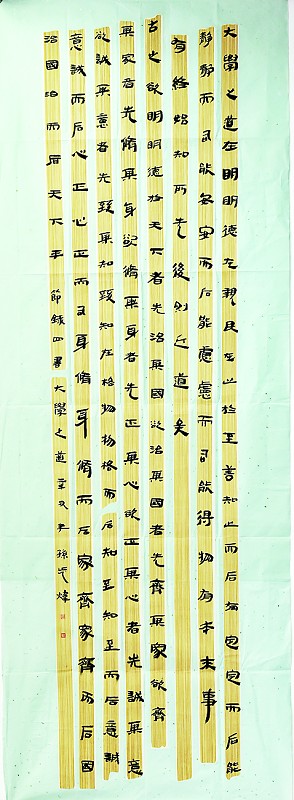 大學之道在明明德在親民在止於至善知止而后有定定而后能
靜靜而后能安安而后能慮慮而后能得物有本末事
有終始知所先後則近道矣
古之欲明明德於天下者先治其國欲治其國者先齊其家欲齊
其家者先脩其身欲脩其身者先正其心欲正其心者先誠其意
欲誠其意者先致其知致知在格物物格而后知至知至而后意誠
意誠而后心正心正而后身脩身脩而后家齊家齊而后國
治國治而后天下平 節錄四書 大學之道 辛 孫